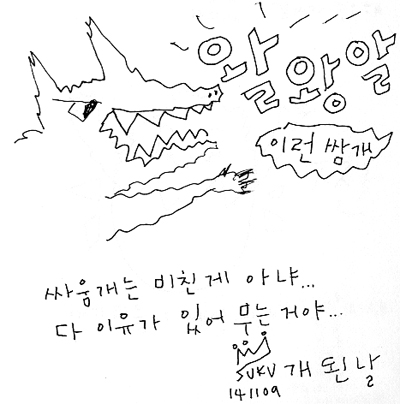 왈왕알
이런 쌈개
싸움개는 미친게 아냐...
다 이유가 있어 무는 거야...
SUKU 개 된 날
141109